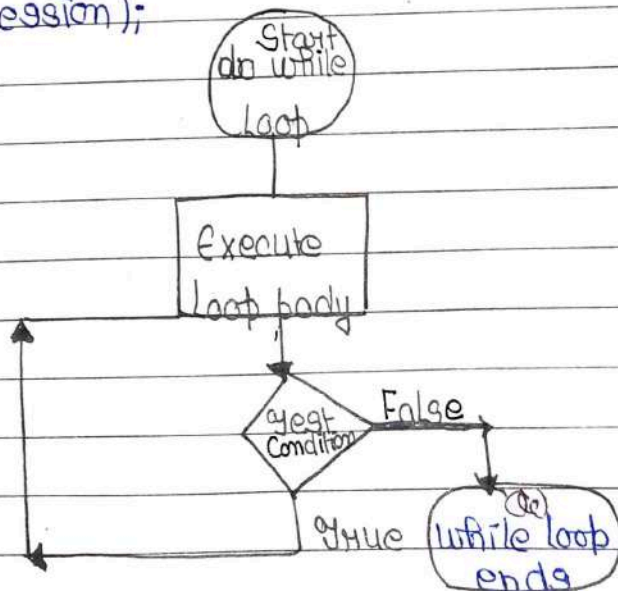 ession);
Start
do while
Loop
Execute
Loop body
Test
Condition
False
True
do
while loop
ends